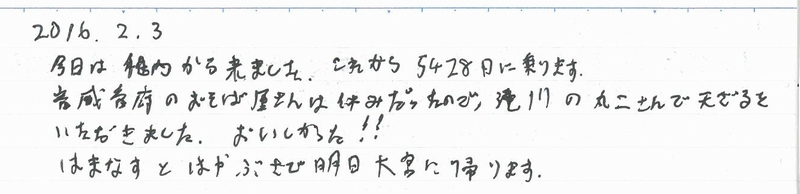 2016.2.3
今日は稚内から来ました。これから5428日に乗ります。
音威音府のおそば屋さんは休みだったので、滝川の丸二さんで天ざるを
いただきました。おいしかった!!
はまなすとはやぶさで明日大宮に帰ります。